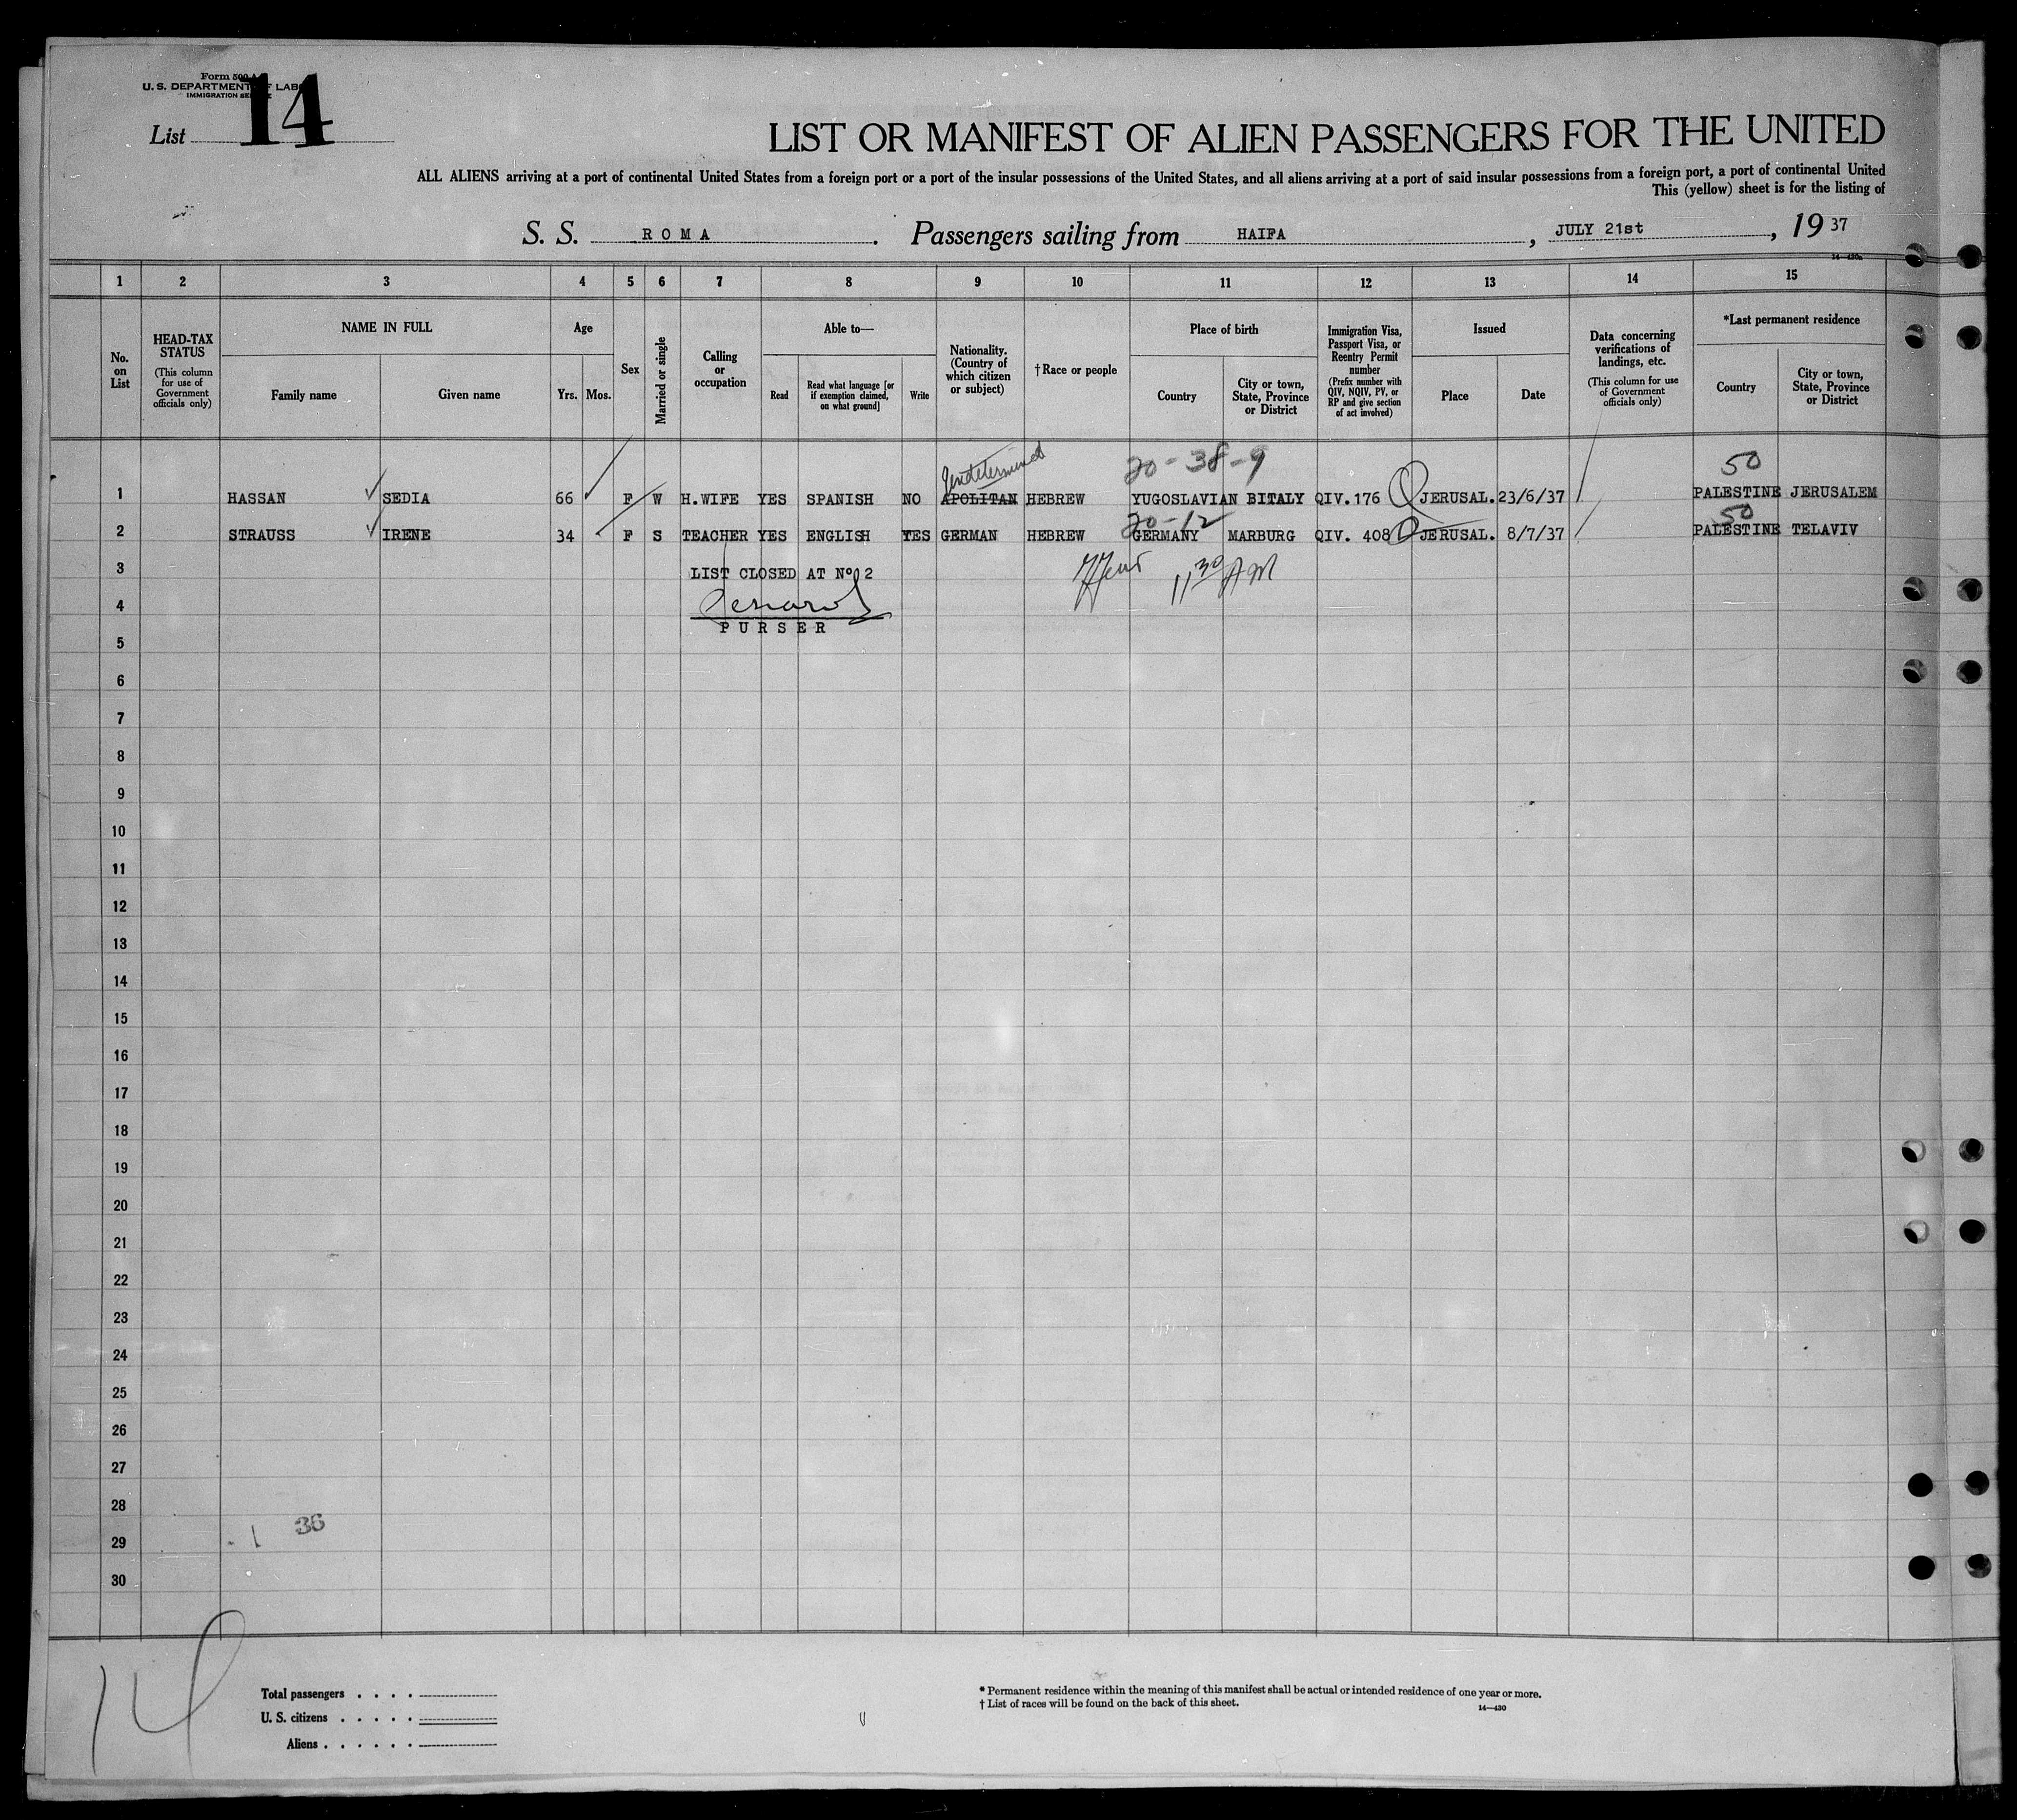 Form 500 A
U. S. DEPARTMENT OF LABOR
IMMIGRATION SERVICE
List 14
LIST OR MANIFEST OF ALIEN PASSENGERS FOR THE UNITED
ALL ALIENS arriving at a port of continental United States from a foreign port or a port of the insular possessions of the United States, and all aliens arriving at a port of said insular possessions from a foreign port, a port of continental United
This (yellow) sheet is for the listing of
S. S. ROMA. Passengers sailing from HAIFA, JULY 21st, 19 37
14—430a
1 2 3 4 5 6 7 8 9 10 11 12 13 14 15
No. on List
HEAD-TAX STATUS (This column for use of Government officials only)
NAME IN FULL
Family name Given name
Age
Yrs. Mos.
Sex
Married or single
Calling or occupation
Able to—
Read Read what language [or if exemption claimed, on what ground] Write
Nationality. (Country of which citizen or subject)
†Race or people
Place of birth
Country City or town, State, Province or District
Immigration Visa, Passport Visa, or Reentry Permit number (Prefix number with QIV, NQIV, PV, or RP and give section of act involved)
Issued
Place Date
Data concerning verifications of landings, etc. (This column for use of Government officials only)
*Last permanent residence
Country City or town, State, Province or District
Undetermined 20-38-9 50
1 HASSAN SEDIA 66 F W H.WIFE YES SPANISH NO APOLITAN HEBREW YUGOSLAVIAN BITALY QIV.176 JERUSAL. 23/6/37 PALESTINE JERUSALEM
20-12 50
2 STRAUSS IRENE 34 F S TEACHER YES ENGLISH YES GERMAN HEBREW GERMANY MARBURG QIV. 408 JERUSAL. 8/7/37 PALESTINE TELAVIV
3 LIST CLOSED AT Nº 2 11 30 AM
4
PURSER
5
6
7
8
9
10
11
12
13
14
15
16
17
18
19
20
21
22
23
24
25
26
27
28
36
29
30
14
Total passengers
U. S. citizens
Aliens
* Permanent residence within the meaning of this manifest shall be actual or intended residence of one year or more.
† List of races will be found on the back of this sheet.
14—430